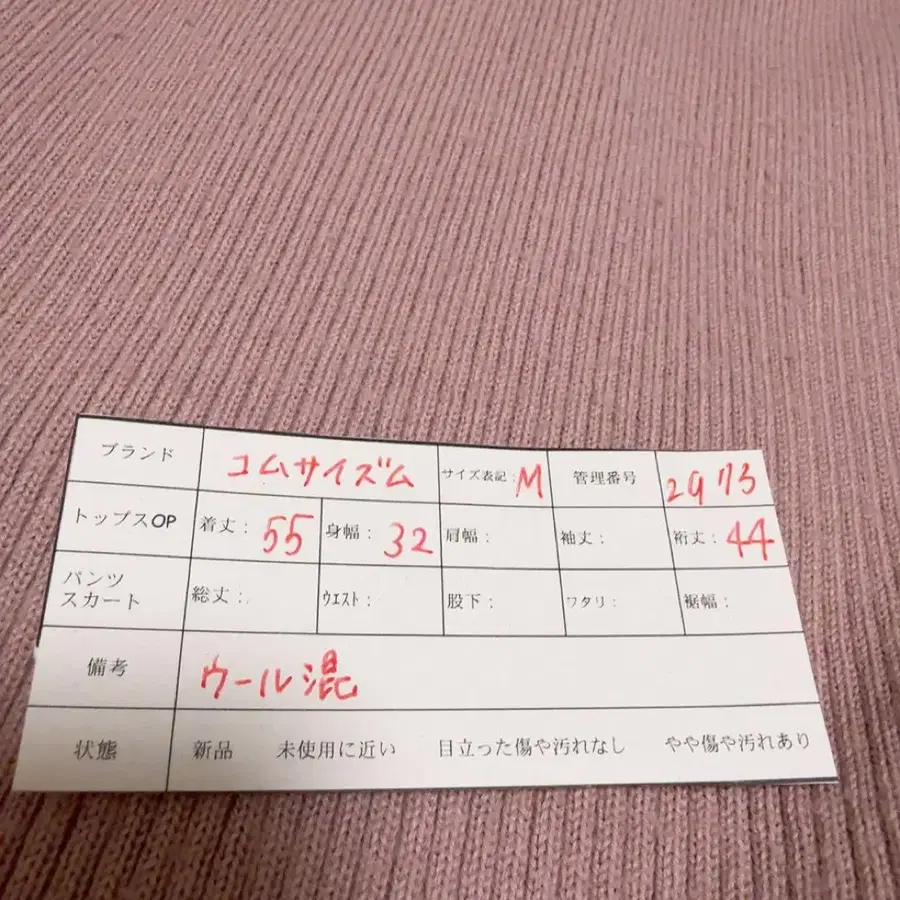 ブランド コムサイズム サイズ表記:M 管理番号 2973
トップスOP 着丈:55 身幅:32 肩幅: 袖丈: 裄丈:44
パンツ
スカート 総丈: ウエスト: 股下: ワタリ: 裾幅:
備考 ウール混
状態 新品 未使用に近い 目立った傷や汚れなし やや傷や汚れあり